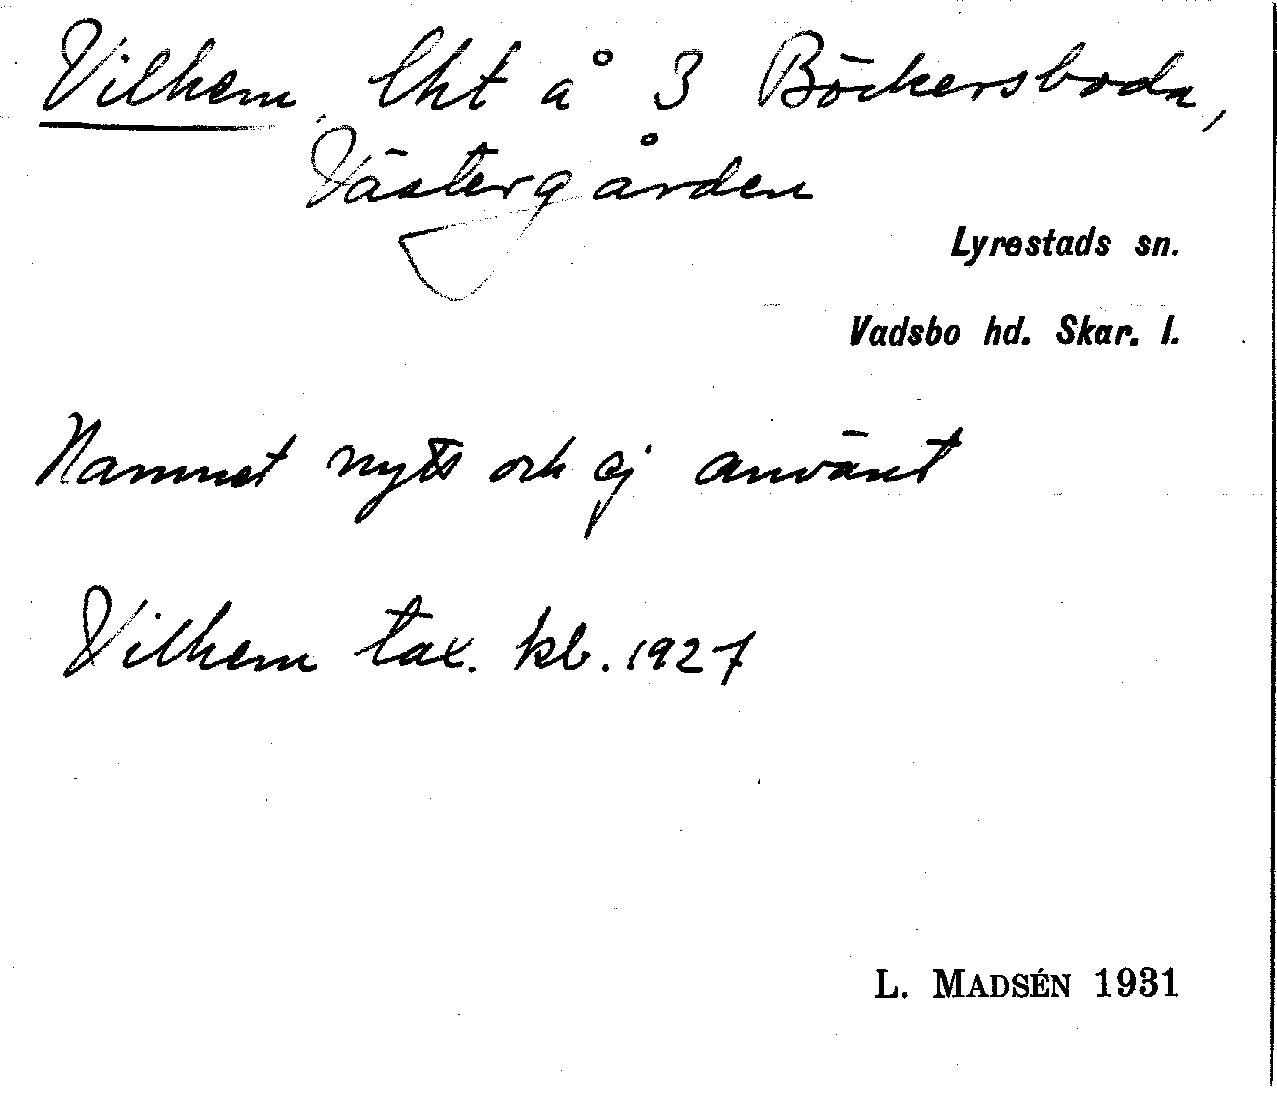 Vilhem, lht å 3 Böckersboda,
Västergården
Lyrestads sn.
Vadsbo hd. Skar. l.
Namnet nytt och ej använt
Vilhem tax. kb. 1927
L. MADSÉN 1931